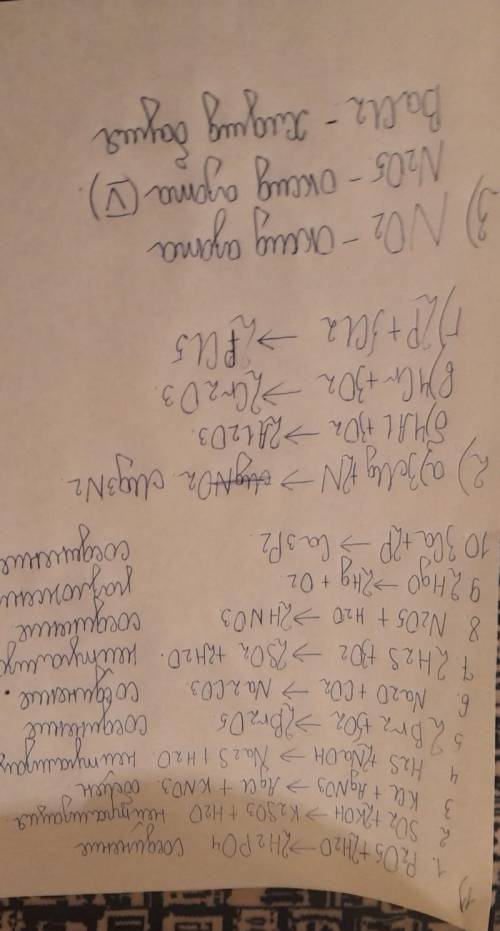 1)
1. P2O5+2H2O→2H2PO4 соединение
2 SO2+2KOH→K2SO3+H2O нейтрализация
3 KCl + AgNO3→ AgCl + KNO3. соедин.
4 H2S+2NaOH→ Na2S+H2O
5 2Br2+5O2→2Br2O5. соединение
6. Na2O+CO2→ Na2CO3 соединение
7. 2H2S+3O2→2SO2+2H2O.
8 N2O5 + H2O→2HNO3 соединение
9 2HgO→2Hg + O2
10 3Ca+2P → Ca3P2 соединение
2) а)3Mg+2N → Mg3N2
б)4Al+3O2→2Al2O3
в)4Cr+3O2 →2Cr2O3.
г)2P+5Cl2 →2PCl5
3) NO2 - оксид азота
N2O5 - оксид азота (V)
BaCl2 - хлорид бария